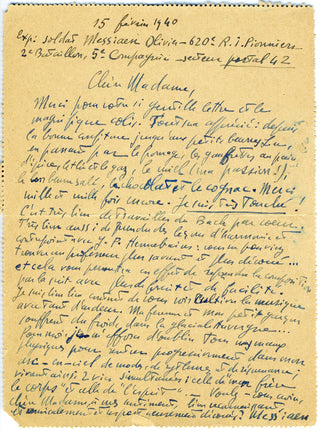 15 février 1940
Exp: soldat Messiaen Olivier – 620e R.I. Pionniers
2e Bataillon, 5e Compagnie – secteur postal 42
Chère Madame,
Merci pour votre si gentille lettre et le
magnifique colis. Tout m'a apprécié: depuis
la bonne confiture jusqu'aux petits beurre Lu,
en passant par le fromage, les gaufrettes au pain
d'épice, le thé, le miel (ma passion!),
le chocolat et le cognac. Merci
mille et mille fois encore. Je suis très touché!
C'est très bien de travailler du Bach par cœur.
Très bien aussi de prendre des leçons d'harmonie,
contrepoint avec J. P. : vous ne pouviez
trouver un professeur plus savant et plus dévoué...
et cela vous permettra en effet de reprendre la composition
par la suite avec plus de fruit et de facilité.
Je suis bien content de vous voir cultiver la musique
avec tant d'ardeur. Ma femme et mon petit garçon
souffrent du froid, dans la glaciale Auvergne...
Pour moi, je m'efforce d'oublier tous mes maux
physiques pour entrer progressivement dans mon
arc-en-ciel de modes, de rythmes et de
vivant ainsi 2 vies simultanées: celle de mon frère
le corps et celle de l'esprit – Voulez-vous croire,
chère Madame, à mes sentiments bien reconnaissants,
et respectueusement dévoués? Messiaen